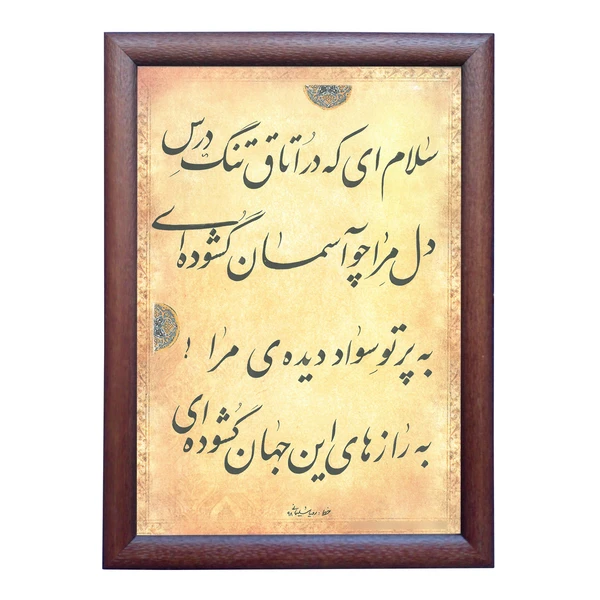 سلام ای که در اتاق تنگ درس
دل مرا چو آسمان گشوده‌ای
به پرتو سواد دیده‌ی مرا !
به رازهای این جهان گشوده‌ای
خط :